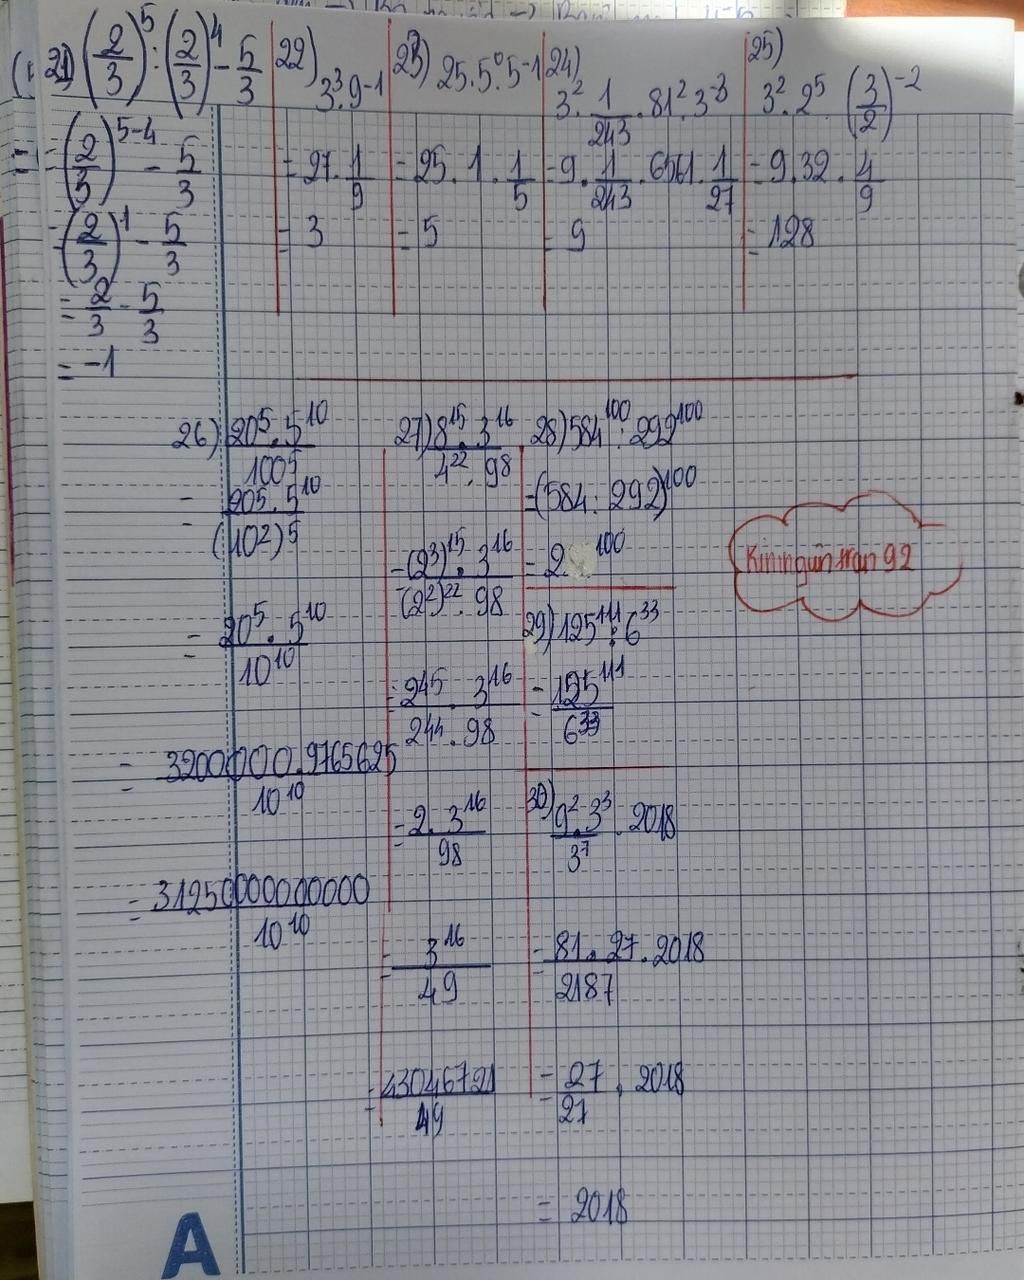 21) (2/3)^5 : (2/3)^4 - 5/3
= (2/3)^{5-4} - 5/3
= (2/3)^1 - 5/3
= 2/3 - 5/3
= -1
22) 3^3 . 9^{-1}
= 27 . 1/9
= 3
23) 25 . 5^0 . 5^{-1}
= 25 . 1 . 1/5
= 5
24)
3^2 . 1/243 . 81^2 . 3^{-3}
= 9 . 1/243 . 6561 . 1/27
= 9
25)
3^2 . 2^5 . (3/2)^{-2}
= 9 . 32 . 4/9
= 128
26) 20^5 . 5^{10} / 100^5
= 20^5 . 5^{10} / (10^2)^5
= 20^5 . 5^{10} / 10^{10}
= 3200000 . 9765625 / 10^{10}
= 31250000000000 / 10^{10}
27) 8^{15} . 3^{16} / 4^{22} . 98
= (2^3)^{15} . 3^{16} / (2^2)^{22} . 98
= 2^{45} . 3^{16} / 2^{44} . 98
= 2 . 3^{16} / 98
= 3^{16} / 49
= 43046721 / 49
28) 584^{100} : 292^{100}
= (584 : 292)^{100}
= 2^{100}
29) 125^{111} : 6^{33}
= 125^{111} / 6^{33}
30) 9^2 . 3^3 / 3^7 . 2018
= 81 . 27 . 2018 / 2187
= 27/27 . 2018
= 2018
A